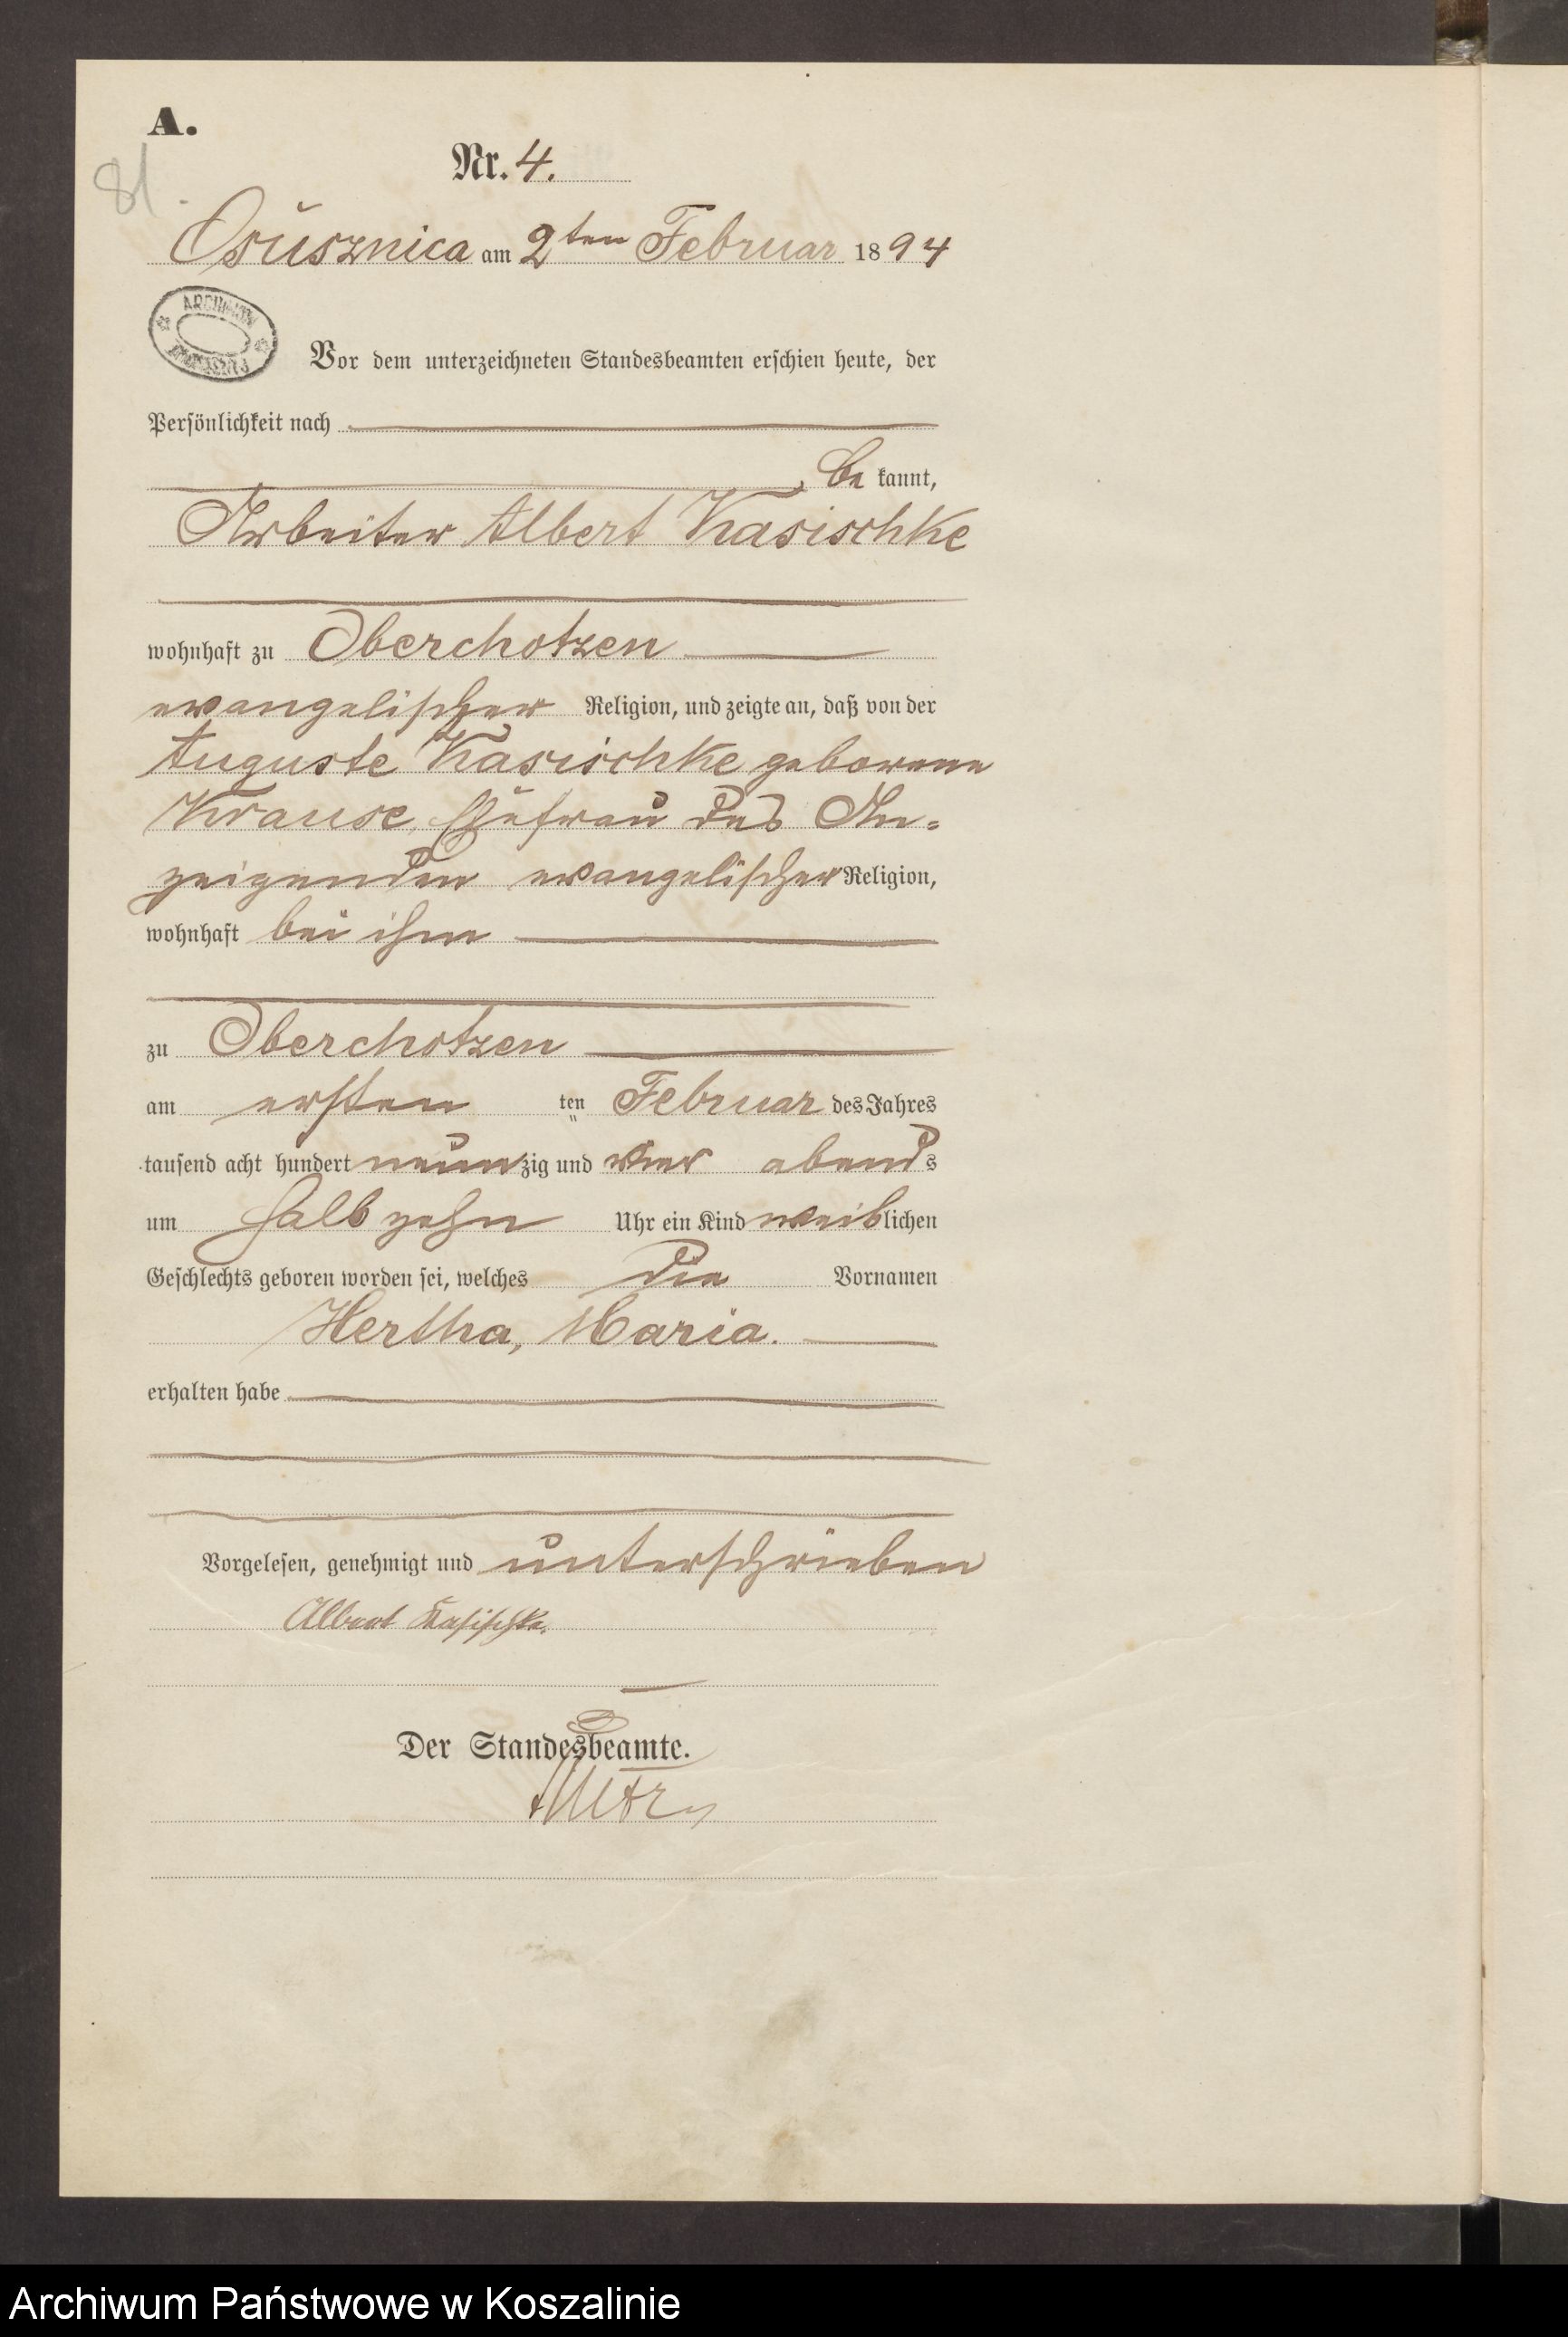 A.
Nr. 4.
81.
Osusznica am 2ten Februar 1894
ARCHIWUM
Vor dem unterzeichneten Standesbeamten erschien heute, der
Persönlichkeit nach
be kannt,
Arbeiter Albert Kasischke
wohnhaft zu Oberchotzen
evangelischer Religion, und zeigte an, daß von der
Auguste Kasischke geborene
Krause, Ehefrau des An-
zeigenden evangelischer Religion,
wohnhaft bei ihm
zu Oberchotzen
am ersten ten Februar des Jahres
tausend acht hundert neunzig und vier abends
um halb zehn Uhr ein Kind weiblichen
Geschlechts geboren worden sei, welches die Vornamen
Hertha, Maria.
erhalten habe
Vorgelesen, genehmigt und unterschrieben
Albert Kasischke.
Der Standesbeamte.
Archiwum Państwowe w Koszalinie